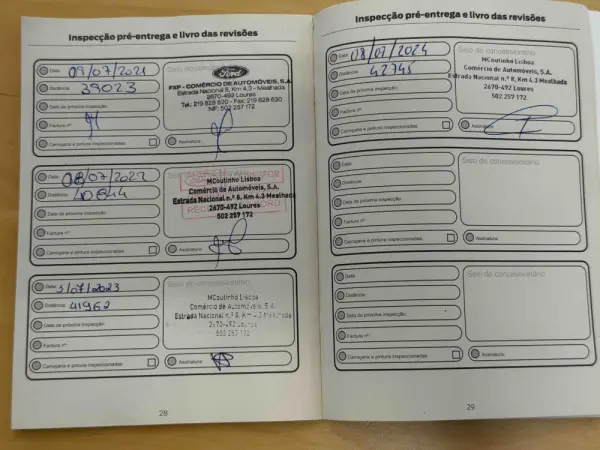 Inspecção pré-entrega e livro das revisões
Data 09/07/2021
Distância 39023
Data da próxima inspecção:
Factura nº
Carroçaria e pintura inspeccionadas
Selo do concessionário
Ford
FXP - COMÉRCIO DE AUTOMÓVEIS, S.A.
Estrada Nacional 8, Km 4.3 - Mealhada
2670-492 Loures
Tel.: 219 828 620 - Fax: 219 828 630
NIF: 502 257 172
Assinatura
Data 08/07/2022
Distância
Data da próxima inspecção:
Factura nº
Carroçaria e pintura inspeccionadas
MCoutinho Lisboa
Comércio de Automóveis, S.A.
Estrada Nacional n.º 8, Km 4.3 Mealhada
2670-492 Loures
502 257 172
Assinatura
Data 31/07/2023
Distância 41962
Data da próxima inspecção:
Factura nº
Carroçaria e pintura inspeccionadas
Selo do concessionário
MCoutinho Lisboa
Comércio de Automóveis, S.A.
Estrada Nacional n.º 8, Km 4.3 Mealhada
2670-492 Loures
502 257 172
Assinatura
28
Inspecção pré-entrega e livro das revisões
Data 18/07/2024
Distância 42745
Data da próxima inspecção:
Factura nº
Carroçaria e pintura inspeccionadas
Selo do concessionário
MCoutinho Lisboa
Comércio de Automóveis, S.A.
Estrada Nacional n.º 8, Km 4.3 Mealhada
2670-492 Loures
502 257 172
Assinatura
Data
Distância
Data da próxima inspecção:
Factura nº
Carroçaria e pintura inspeccionadas
Selo do concessionário
Assinatura
Data
Distância
Data da próxima inspecção:
Factura nº
Carroçaria e pintura inspeccionadas
Selo do concessionário
Assinatura
29